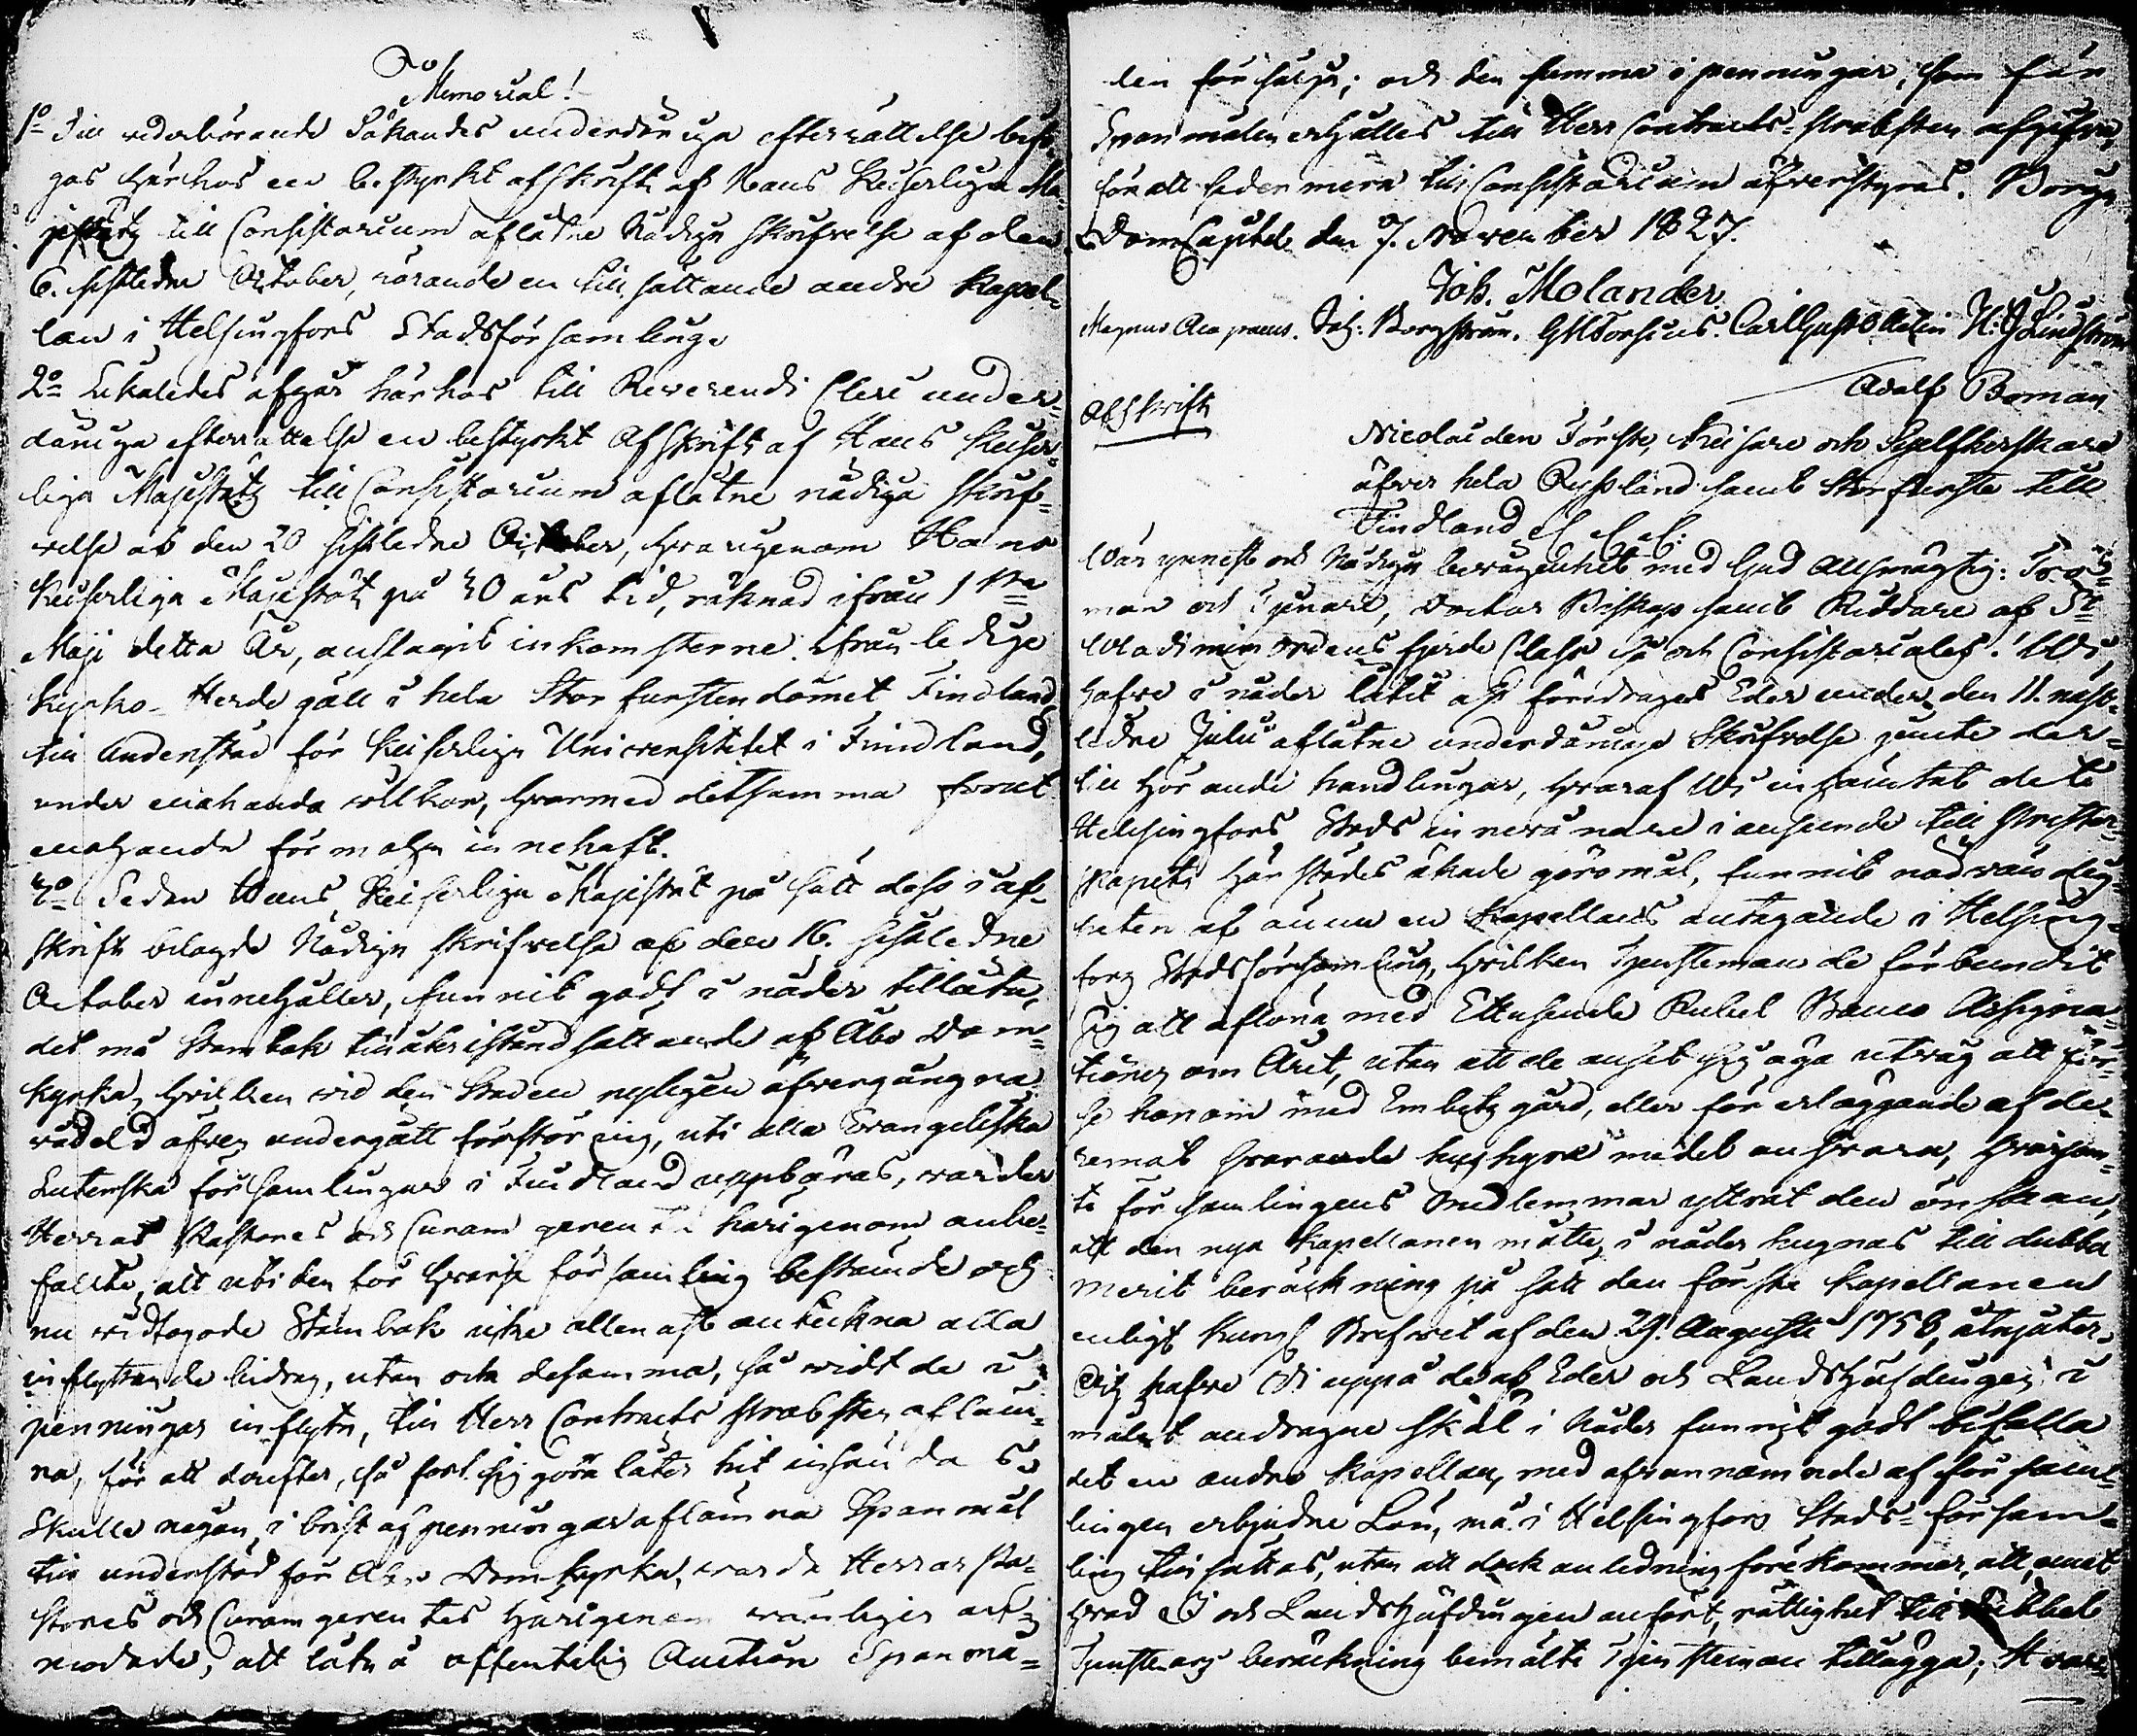 Memorial!
1o Till vederbörande Sökandes underdåniga efterrättelse bifo-
gas härhos en bestyrkt afskrift af Hans Keiserliga Ma-
jestäts till Consistorium aflåtne Nådiga skrifvelse af den
6. sistledne October, rörande en till sättande andre Kapel-
lan i Helsingfors Stadsförsamling.
2o Likaledes afgår härhos till Reverendi Cleri under-
dåniga efterrättelse en bestyrkt Afskrift af Hans Keiser-
liga Majestäts till Consistorium aflåtne nådiga skrif-
velse af den 20 sistledne October, hvarigenom Hans
Keiserliga Majestät på 20 års tid, räknad ifrån 1sta
Maji detta År, anslagit inkomsterne ifrån ledige
Kyrko-Herde gäll i hela Storfurstendömet Findland
till Understöd för Keiserliga Universitetet i Finndland,
under enahanda villkor, hvarmed detsamma förut
enahanda förmohn innehaft.
3o Sedan Hans Keiserliga Majestät på sätt dess i af-
skrift bilagde Nådiga skrifvelse af den 16. sistledne
October innehåller, funnit godt i nåder tillåta,
det må Stambok till återiståndsättande af Åbo Dom-
kyrka, hvilken vid den Staden nyligen öfvergångna
vådeld äfven undergått förstöring, uti alla Evangeliska
Luterska församlingar i Findland uppbäras, varder
Herrar Pastores och Curam gerentes härigenom anbe-
fallte, att uti den för hvarje församling bestämde och
nu vidtagode Stambok icke allenast anteckna alla
inflytande bidrag, utan ock desamma, så vidt de i
penningar inflyta, till Herr Contracts Probsten afläm-
na, för att derefter, så fort sig göra låter hit insända s.
Skulle någon i brist af penningar aflämna Spanmål
till understöd för Åbo Domkyrka, varda Herrar Pa-
stores och Curam gerentes härigenom vänligen an-
modade, att låta å offentelig Auction Spanmå-
len försälja; och den summa i penningar, som för
Spanmålen erhålles till Herr Contracts-Probsten afgifva,
för att sedermera till Consistorium öfverstyras. Borgå
DomCapitel den 7. November 1827.
Joh. Molander
Magnus Alopaeus. Joh: Borgström. GMForsius. Carl Gust Ottelin N: J Lindström
Adolf Boman
Afskrift
Nicolai den Förste, Keisare och Sjelfherskare
öfver hela Ryssland samt Storfurste till
Findland &c &c &c:
Vår ynnest och Nådiga bevågenhet med Gud Allsmägtig: Tro-
man och Tjenare, Doctor Biskop samt Riddare af St
Wladimirs ordens fjerde Class så och Consistoriales! Wi
hafve i nåder låtit oss föredragas Eder under den 11. näst-
ledne Julii aflåtne underdåniga Skrifvelse jemte der-
till hörande handlingar, hvaraf Wi inhämtat det
Helsingfors Stads innevånare i anseende till Prester-
skapets härstädes ökade göromål, funnit nödvändig-
heten af ännu en Kapellans antagande i Helsing-
fors Stadsförsamling, hvilken Tjensteman de förbundit
sig att aflöna med Ettusende Rubel Banco Assigna-
tioner om Året, utan att de ansett sig äga utväg att för-
se honom med Embets gård, eller för erläggande af de-
remot svarande hushyre medel ansvara, hvarjem-
te församlingens medlemmar yttrat den önskan,
att den nya Kapellanen måtte i nåder hugnas till dubbel
merit beräckning på sätt den förste Kapellanen
enligt Kungl Brefvet af den 29. Augusti 1758, åtnjuter.
Och hafve Wi uppå de af Eder och Landshöfdingen i
målet andragne skäl i Nåder funnit godt bifalla
det en andre Kapellan, med ofvannämnde af försam-
lingen erbjudne Lön, må i Helsingfors Stads-församl-
ing tillsättas, utan att dock anledning förekommer, att, emot
hvad I och Landshöfdingen anfört, rättighet till dubbel
Tjensteårs beräckning bemälte Tjensteman tillägga; Hvar-